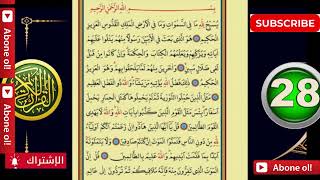 Abone ol!
Abone ol!
Abone ol!
الإشتراك
Abone ol!
بِسْمِ اللهِ الرَّحْمٰنِ الرَّحِيمِ
يُسَبِّحُ لِلّٰهِ مَا فِي السَّمٰوَاتِ وَمَا فِي الْاَرْضِ الْمَلِكِ الْقُدُّوسِ الْعَزِيزِ
الْحَكِيمِ هُوَ الَّذِي بَعَثَ فِي الْاُمِّيِّنَ رَسُولًا مِنْهُمْ يَتْلُوا عَلَيْهِمْ
اٰيَاتِهِ وَيُزَكِّيهِمْ وَيُعَلِّمُهُمُ الْكِتَابَ وَالْحِكْمَةَ وَاِنْ كَانُوا مِنْ قَبْلُ
لَفِي ضَلَالٍ مُبِينٍ وَاٰخَرِينَ مِنْهُمْ لَمَّا يَلْحَقُوا بِهِمْ وَهُوَ الْعَزِيزُ
الْحَكِيمُ ذٰلِكَ فَضْلُ اللهِ يُؤْتِيهِ مَنْ يَشَاءُ وَاللهُ ذُو الْفَضْلِ الْعَظِيمِ
مَثَلُ الَّذِينَ حُمِّلُوا التَّوْرٰيةَ ثُمَّ لَمْ يَحْمِلُوهَا كَمَثَلِ الْحِمَارِ يَحْمِلُ
اَسْفَارًا بِئْسَ مَثَلُ الْقَوْمِ الَّذِينَ كَذَّبُوا بِاٰيَاتِ اللهِ وَاللهُ لَا يَهْدِي
الْقَوْمَ الظَّالِمِينَ قُلْ يَا اَيُّهَا الَّذِينَ هَادُوا اِنْ زَعَمْتُمْ اَنَّكُمْ اَوْلِيَاءُ
لِلّٰهِ مِنْ دُونِ النَّاسِ فَتَمَنَّوُا الْمَوْتَ اِنْ كُنْتُمْ صَادِقِينَ وَلَا يَتَمَنَّوْنَهُ
اَبَدًا بِمَا قَدَّمَتْ اَيْدِيهِمْ وَاللهُ عَلِيمٌ بِالظَّالِمِينَ قُلْ اِنَّ الْمَوْتَ
الَّذِي تَفِرُّونَ مِنْهُ فَاِنَّهُ مُلَاقِيكُمْ ثُمَّ تُرَدُّونَ اِلٰى عَالِمِ
SUBSCRIBE
28
Abone ol!